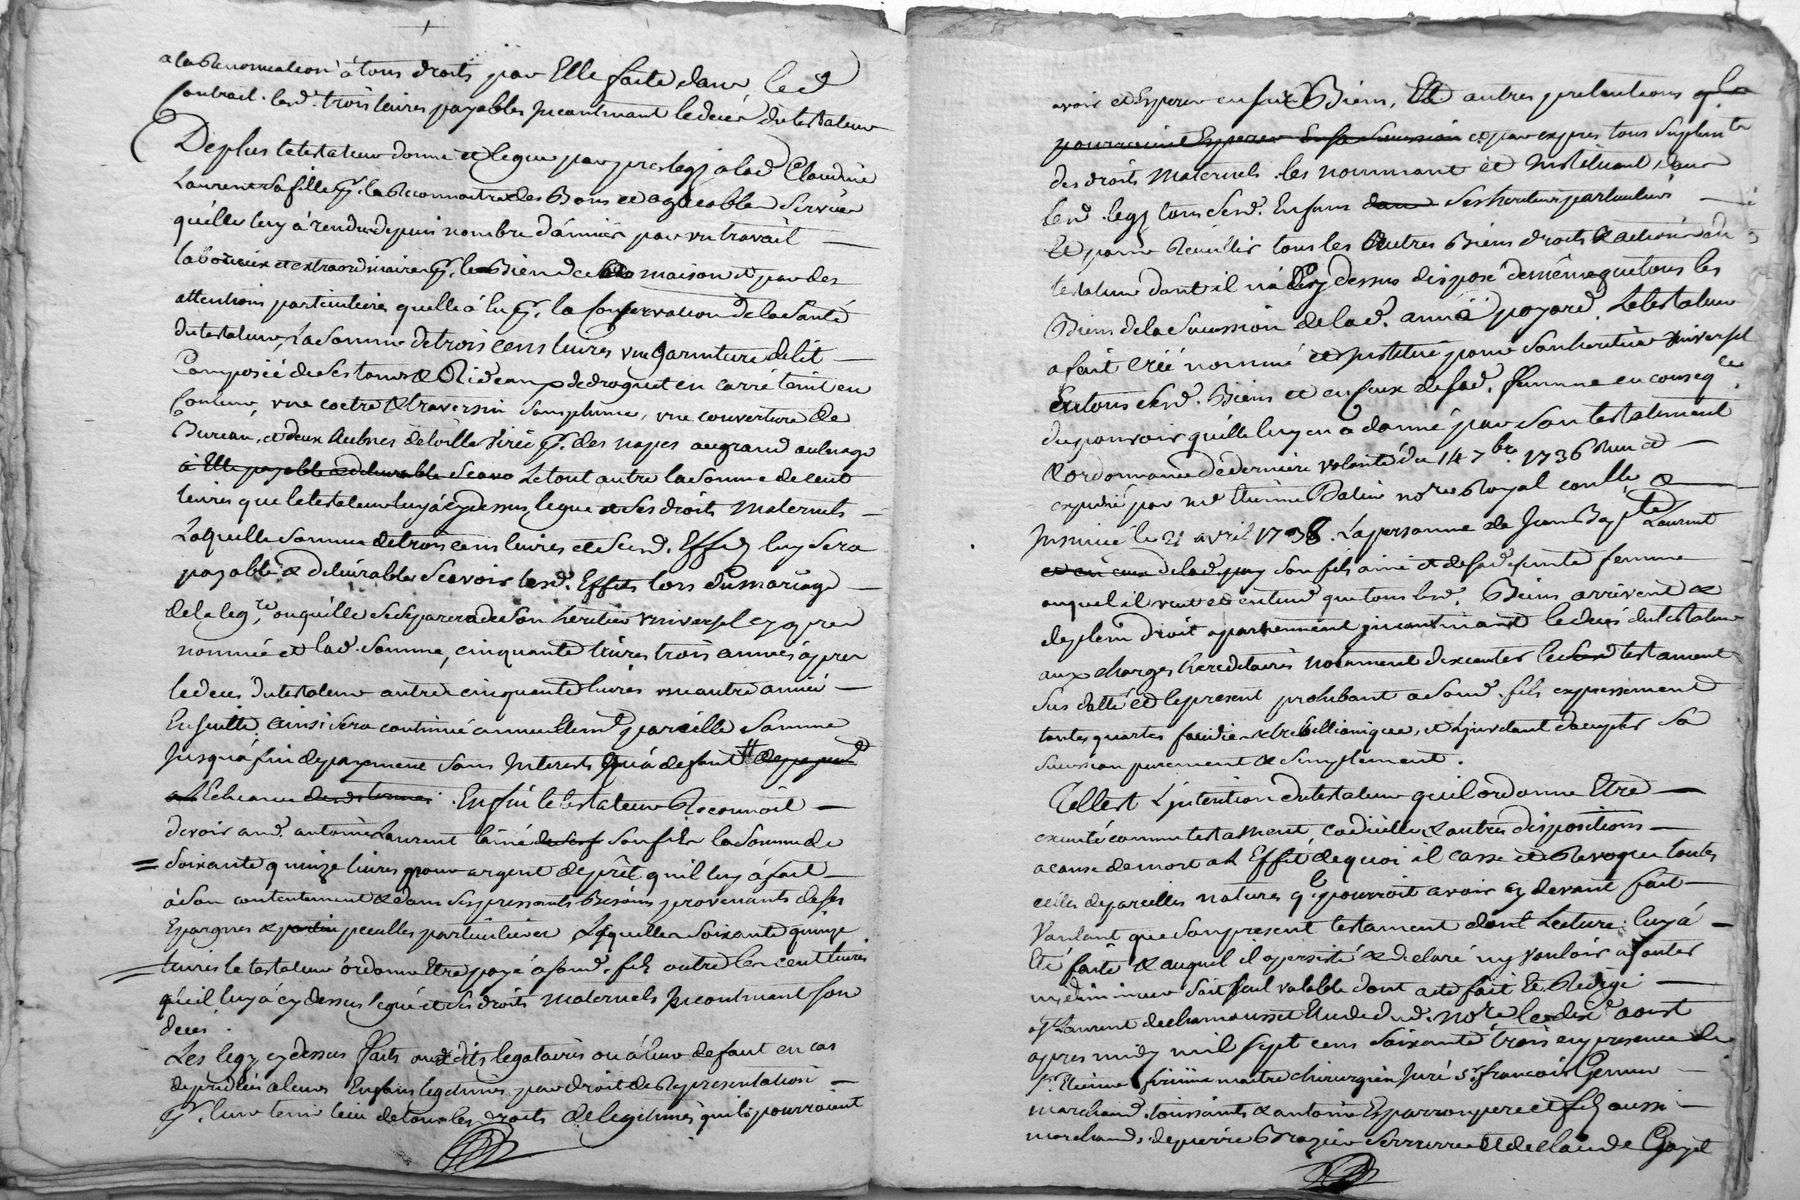 a la Renonciation à tous droits par Elle faite dans led
Contract. lesd. trois livres payables Incontinant le decès du testateur
De plus le testateur donne et legue par prelegz a lad. Claudine
Laurent Sa fille pr. la Reconnoitre des Bons et agreables Services
qu'elle luy à rendu depuis nombre d'années par un travail
laborieux et extraordinaire pr. le Bien de sa maison et par des
attentions particulieres quelle à eu pr. la Conservation de la Santé
du testateur, La Somme de trois cens livres une garniture de lit
Composée de Ses tours & Rideaux de droguet en carré teint en
Couleur, une coetre & traversin Sans plume, une couverture de
Bureau, et deux Aulnes de toille pr. des napes au grand aulnage
à Elle payable et delivrable Scavo Le tout outre la Somme de cent
livres que le testateur luy à cy dessus legué et Ses droits Maternels
Laquelle Somme de trois cens livres et Sesd. Effets luy Sera
payable & delivrable Scavoir lesd. Effets lors du mariage
de la legre. ou qu'elle Se Separera de Son heritier universel cy apres
nommé et lad. Somme, cinquante livres trois années àpres
le deces du testateur autre cinquante livres une autre année
Ensuitte, ainsi Sera continué annuellemt. pareille Somme
Jusqu'à fin de payement Sans Interets qu'à defaut de payemt
a L'Echeance des d. termes. Enfin le testateur Reconnoit
devoir aud. antoine Laurent l'ainé Son fils la Somme de
Soixante quinze livres pour argent de prêt qu'il luy à fait
à Son contentement & dans Ses pressants Besoins provenants de Ses
Epargnes & peculles particulieres Lesquelles Soixante quinze
livres le testateur ordonne Etre payé à sond. fils outre les cent livres
qu'il luy à cy dessus legué et Ses droits Maternels Incontinant Son
deces.
Les legz cy dessus faits auxdits legataires ou à leur defaut en cas
de predecès a leurs Enfans legitimes par droit de Representation
pr. leur tenir lieu de tous les droits de legitimes qu'ils pourroient
avoir et Esperer en Ses Biens, Et autres pretentions qls
pourroient Esperer En Sa Succession et par expres tous Suplemts
des droits Maternels les nommant et Instituant dans
lesd. legz tous Sesd. Enfans dans Ses heritiers particuliers
Et pour Recueillir tous les Autres Biens droits & actions du
testateur dont il n'à cy dessus disposé de même que tous les
Biens de la Succession de lad. anne poyard. Le testateur
a fait créé nommé et Institué pour Son heritier universel
En tous Sesd. Biens et en ceux de Sad. femme en conseqce.
du pouvoir qu'elle luy en à donné par Son testament
& ordonnance de derniere volonté du 14 7bre 1736 Reçu et
expedié par me Etienne Notre Royal &
Insinué le 21 avril 1738. La personne de Jean Bapte Laurent
Son fils ainé et de Sad. defunte femme
auquel il veut et entend que tous lesd. Biens arrivent &
de plein droit apartiennent Incontinant le deces du testateur
aux charges hereditaires notamment d'executer le testament
Sus datté et le present prohibant a Sond. fils expressement
toutes quartes falcidie & trebellianique, et Luy deffendant d'accepter Sa
Succession purement & Simplement.
Telle est L'intention du testateur qu'il ordonne Etre
executé comme testament codicille & autres dispositions
a cause de mort a L'Effet de quoi il casse et Revoque toutes
celles de pareilles natures ql. pourroit avoir cy devant fait
Voulant que Son present testament dont Lecture luy à
Eté faite & auquel il à persisté & declaré n'y vouloir ajouter
ny diminuer Soit Seul valable dont acte fait et Redigé
a St Laurent de chamousset Etude du d. Nore le dix aoust
apres midy mil Sept cens Soixante trois en presence de
Sr. Etienne maitre chirurgien Juré Sr. francois
marchand, toussaints & antoine Esparron pere et fils aussi
marchands, de pierre Brazier Serrurier Et de Claude